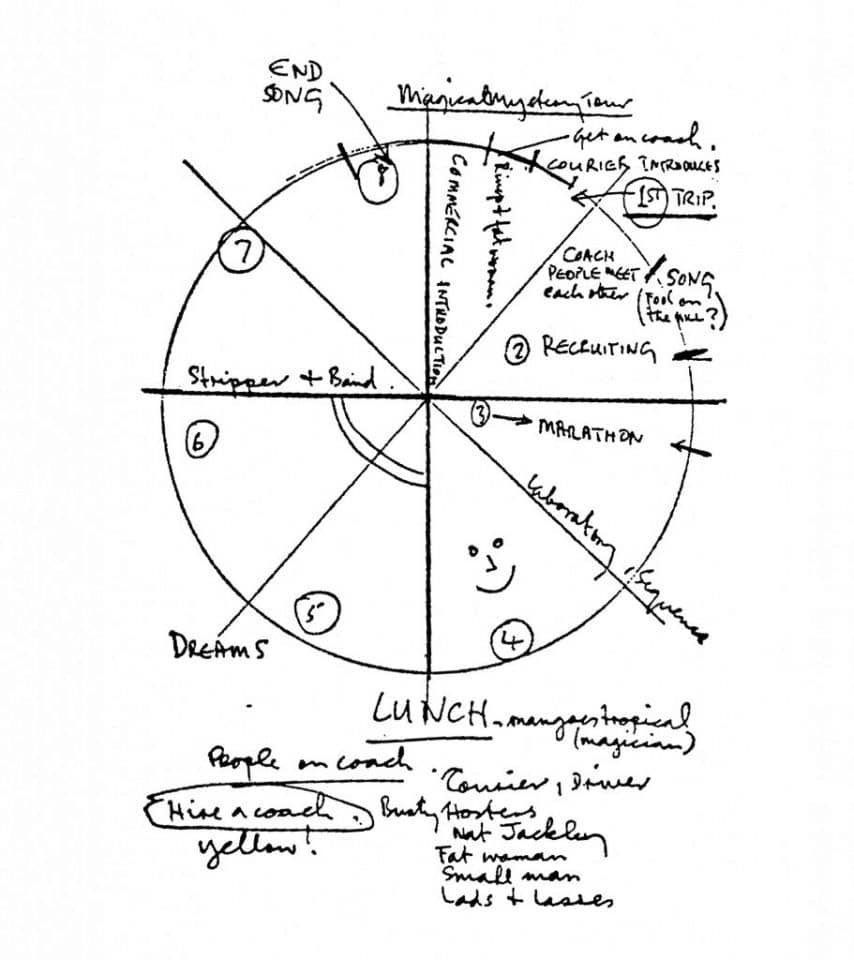 END
SONG
Magical Mystery Tour
Get on coach.
COURIER INTRODUCES
1ST TRIP.
COMMERCIAL INTRODUCTION
fat woman.
COACH
PEOPLE MEET
each other
SONG
(Fool on
the Hill?)
2 RECRUITING
7
8
Stripper + Band.
3 → MARATHON
6
Laboratory Sequence
5
4
DREAMS
LUNCH - mangoes tropical
(magician)
People on coach
Courier, Driver
Hire a coach. Busty Hostess
yellow!
Nat Jackley
Fat woman
Small man
Lads + Lasses